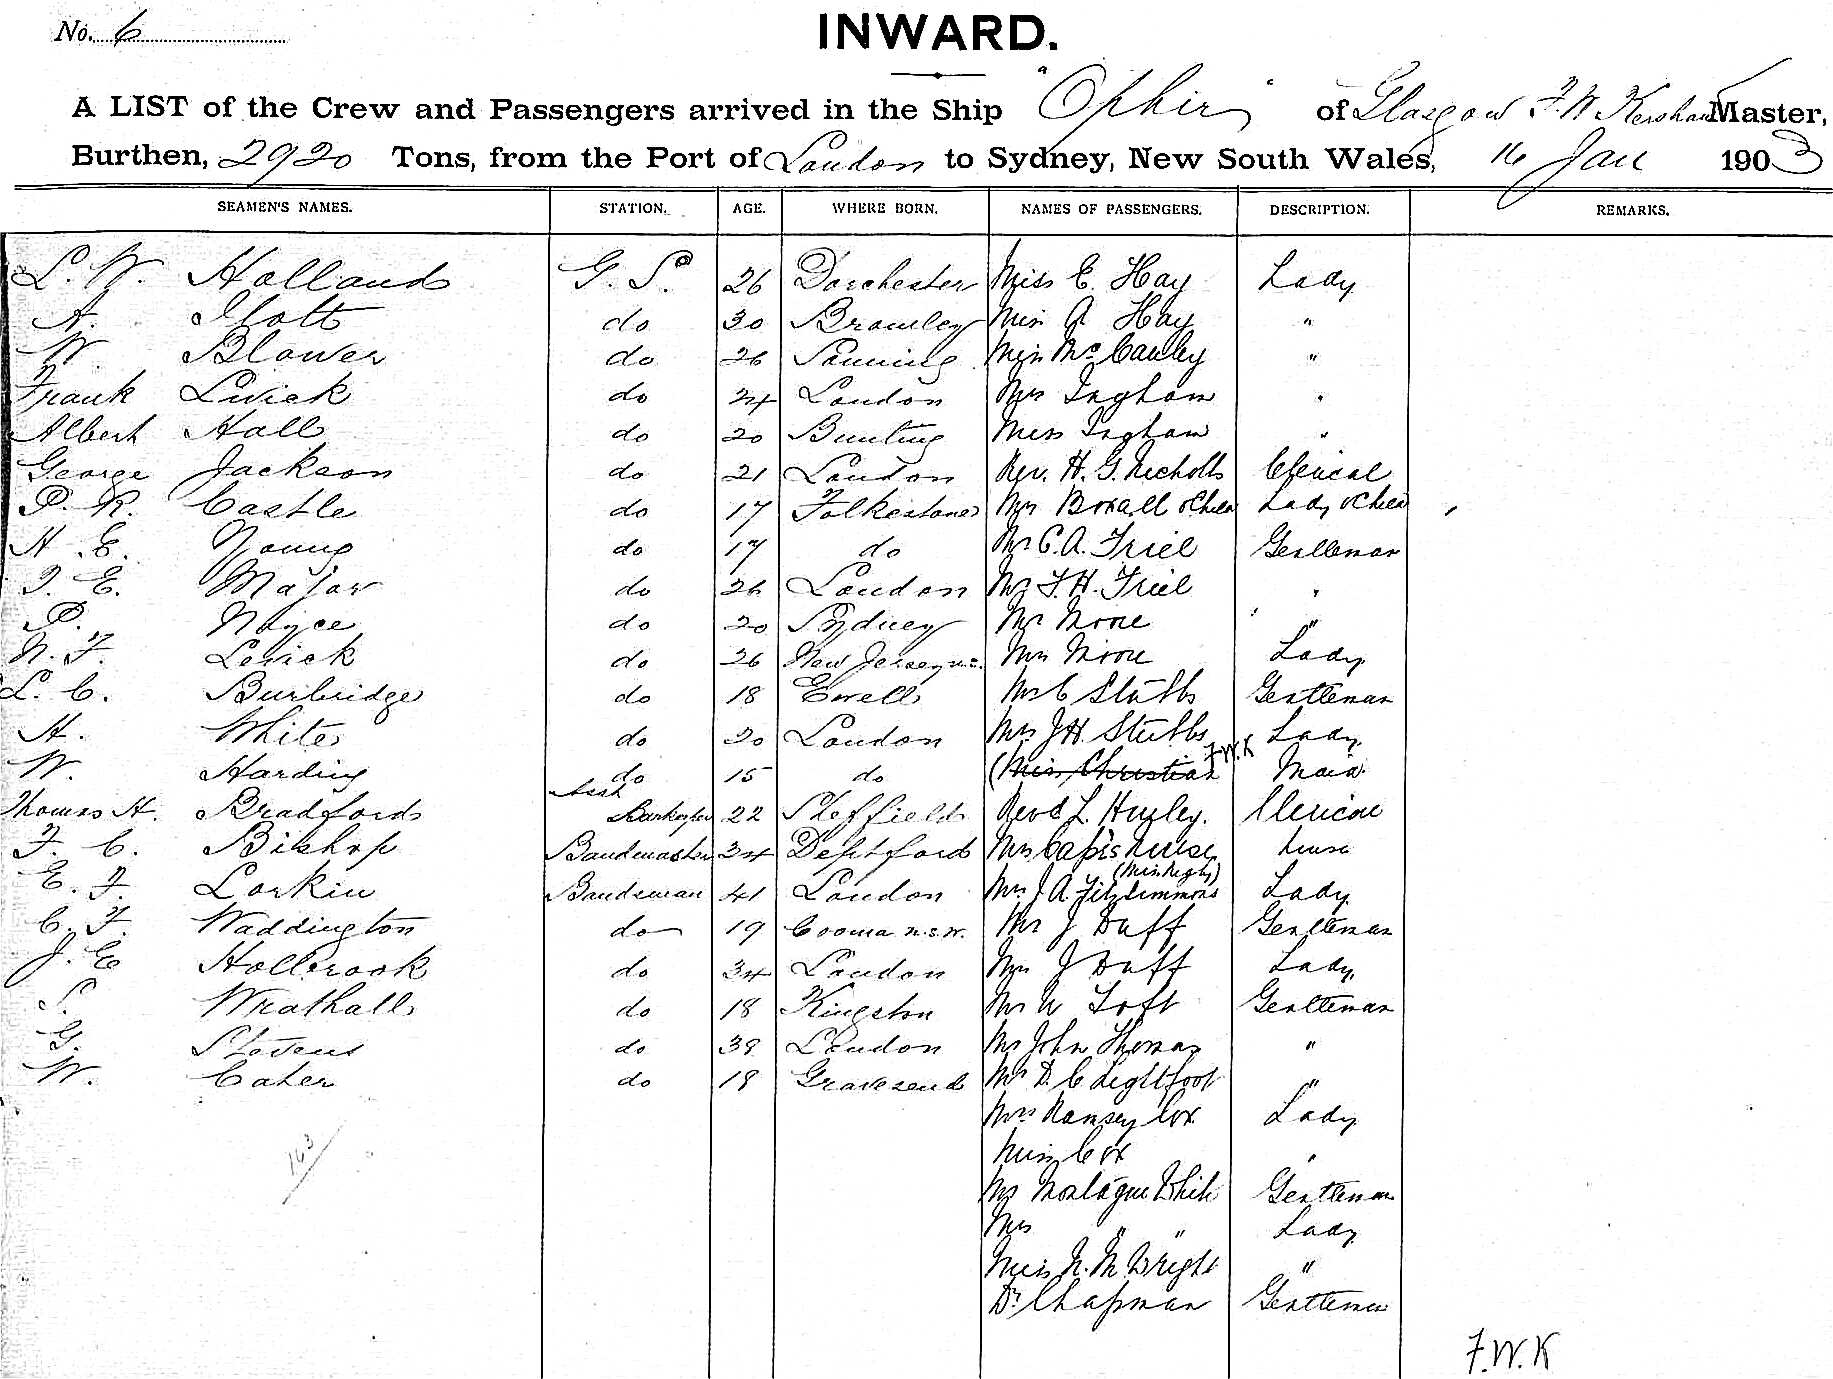 No. 6
INWARD.
A LIST of the Crew and Passengers arrived in the Ship "Ophir" of Glasgow F. W Kershaw Master,
Burthen, 2920 Tons, from the Port of London to Sydney, New South Wales, 16 Jan 1903
SEAMEN'S NAMES. STATION. AGE. WHERE BORN. NAMES OF PASSENGERS. DESCRIPTION. REMARKS.
L. W. Holland G. S. 26 Dorchester Miss E. Hay Lady
A. do 30 Bromley Miss A Hay "
W. Blower do 26 Sonning Miss McCauley "
Frank do 24 London Mrs Ingham "
Albert Hall do 20 Bunting Miss Ingham "
George Jackson do 21 London Rev. H. G. Nicholls Clerical
P. R. Castle do 17 Folkestone Mrs Boxall & Child Lady & Child
H. E. Young do 17 do Mr C. A. Friel Gentleman
F. E. Major do 26 London Mr F. H. Friel "
P. Noyce do 20 Sydney Mr "
N. F. Levick do 26 New Jersey Mrs Lady
L. C. Burbridge do 18 Ewell Mr C Stubbs Gentleman
H. White do 20 London Mrs J H Stubbs Lady
F.W.K
W. Harding do 15 do (Miss Christian Maid
Thomas H. Bradford Asst Barkeeper 22 Sheffield Revd L. Huxley. Clerical
F. C. Bishop Bandmaster 34 Deptford Mrs nurse nurse
E. F. Lorkin Bandsman 41 London Mrs J. A. Fitzsimmons Lady
C. F. Waddington do 19 Cooma N.S.W. Mr J Duff Gentleman
J. E. Holbrook do 34 London Mrs J Duff Lady
S. Wrathall do 18 Kingston Mr W Toft Gentleman
G. Stevens do 38 London Mr John Thomas "
W. Cater do 18 Gravesend Mr D. C Lightfoot "
Mrs Ramsey Cox Lady
Miss Cox "
Mr Montague White Gentleman
Mrs " " Lady
Miss N. M. Wright "
Dr. Chapman Gentleman
163
F.W.K